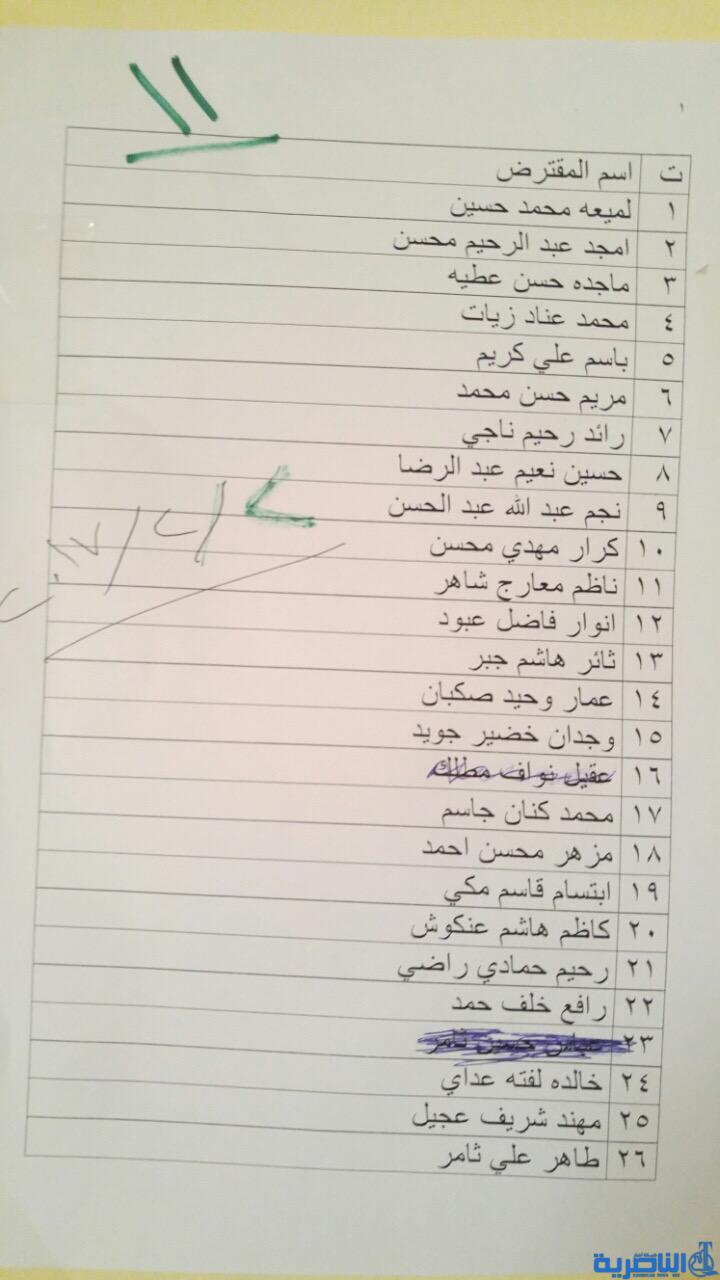 ١١
١
ت اسم المقترض
١ لميعه محمد حسين
٢ امجد عبد الرحيم محسن
٣ ماجده حسن عطيه
٤ محمد عناد زيات
٥ باسم علي كريم
٦ مريم حسن محمد
٧ رائد رحيم ناجي
٨ حسين نعيم عبد الرضا
٩ نجم عبد الله عبد الحسن
١٠ كرار مهدي محسن
١١ ناظم معارج شاهر
١٢ انوار فاضل عبود
١٣ ثائر هاشم جبر
١٤ عمار وحيد صكبان
١٥ وجدان خضير جويد
١٦ عقيل نواف مطلك
١٧ محمد كنان جاسم
١٨ مزهر محسن احمد
١٩ ابتسام قاسم مكي
٢٠ كاظم هاشم عنكوش
٢١ رحيم حمادي راضي
٢٢ رافع خلف حمد
٢٣ عباس حسين ثامر
٢٤ خالده لفته عداي
٢٥ مهند شريف عجيل
٢٦ طاهر علي ثامر
الناصرية